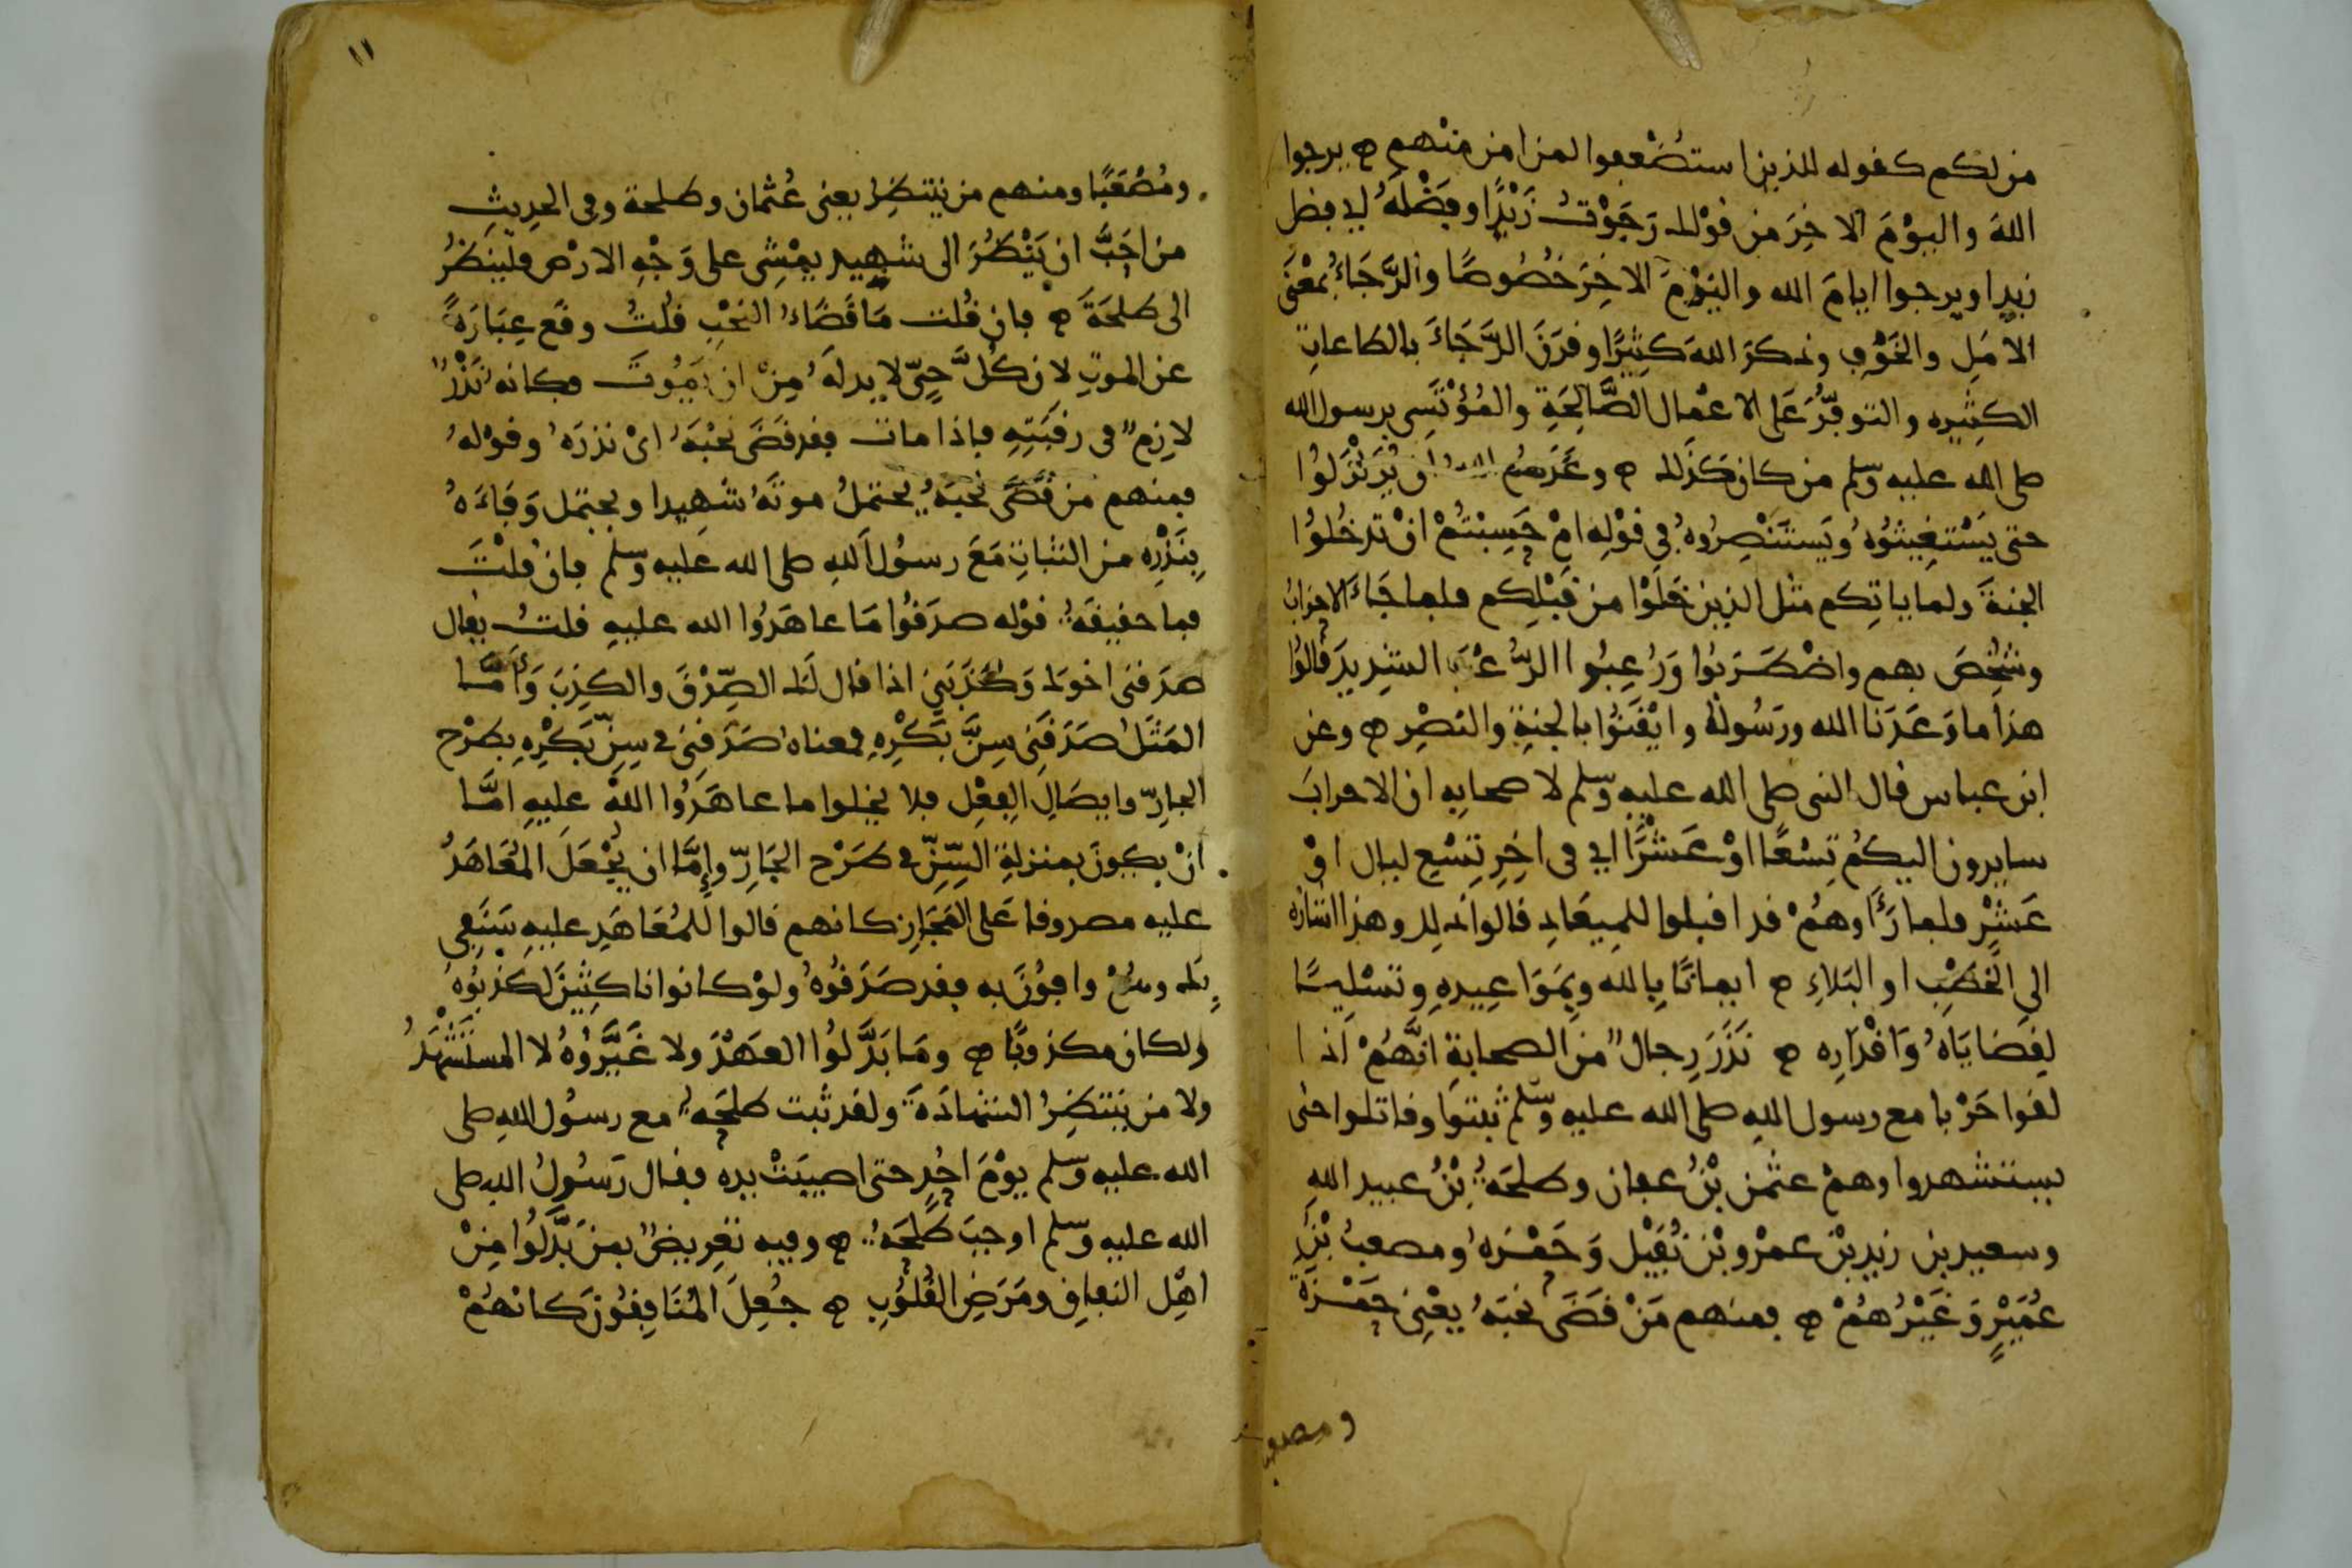 من لكم كقوله للذين استضعفوا لمن امن منهم ه يرجوا
الله واليوم الاخر من قولك رجوت زيدًا وفضله اي فضل
زيد او يرجوا ايام الله واليوم الاخر خصوصًا والرجاء بمعنى
الامل والخوف وذكر الله كثيرًا وقرن الرجاء بالطاعات
الكثيره والتوفر على الاعمال الصالحة والمؤتسى برسول الله
صلى الله عليه وسلم من كان كذلك ه وعدهم الله ان يزلزلوا
حتى يستغيثوه ويستنصروه في قوله ام حسبتم ان تدخلوا
الجنة ولما ياتكم مثل الذين خلوا من قبلكم فلما جاء الاحزاب
وشخص بهم واضطربوا ورعبوا الرعب الشديد قالوا
هذا ما وعدنا الله ورسوله وايقنوا بالجنة والنصر ه وعن
ابن عباس قال النبى صلى الله عليه وسلم لاصحابه ان الاحزاب
سايرون اليكم تسعًا او عشرًا اي فى اخر تسع ليال او
عشر فلما رأوهم قد اقبلوا للميعاد قالوا ذلك وهذا اشارة
الى الخطب او البلاء ه ايمانًا بالله وبمواعيده وتسليمًا
لقضاياه واقداره ه نذر رجال من الصحابة انهم اذا
لقوا حربا مع رسول الله صلى الله عليه وسلم ثبتوا وقاتلوا حتى
يستشهدوا وهم عثمن بن عفان وطلحة بن عبيد الله
وسعيد بن زيد بن عمرو بن نفيل وحمزه ومصعب بن
عمير وغيرهم ه فمنهم من قضى نحبه يعني حمزة
ومصعبا
١١
ومصعبًا ومنهم من ينتظر يعنى عثمان وطلحة وفى الحديث
من احب ان ينظر الى شهيد يمشى على وجه الارض فلينظر
الى طلحة ه فان قلت ما قضاء النحب قلت وقع عبارة
عن الموت لان كل حي لا بد له من ان يموت فكانه نذر
لازم فى رقبته فاذا مات فقد قضى نحبه اى نذره وقوله
فمنهم من قضى نحبه يحتمل موته شهيدا ويحتمل وفاءه
بنذره من الثبات مع رسول الله صلى الله عليه وسلم فان قلت
فما حقيقة قوله صدقوا ما عاهدوا الله عليه قلت يقال
صدقنى اخوك وكذبني اذا قال لك الصدق والكذب وأما
المثل صدقنى سن بكره فمعناه صدقنى فى سن بكره بطرح
الجار وايصال الفعل فلا يخلوا ما عاهدوا الله عليه اما
ان يكون بمنزلة السن فى طرح الجار وإما ان يجعل المعاهد
عليه مصدوقا على المجاز كانهم قالوا للمعاهد عليه سنفى
بك وهم وافون به فقد صدقوه ولو كانوا ناكثين لكذبوه
ولكان مكذوبًا ه وما بدلوا العهد ولا غيروه لا المستشهد
ولا من ينتظر الشهادة ولقد ثبت طلحة مع رسول الله صلى
الله عليه وسلم يوم احد حتى اصيبت يده فقال رسول الله صلى
الله عليه وسلم اوجب طلحة ه وفيه تعريض بمن بدلوا من
اهل النفاق ومرض القلوب ه جعل المنافقون كانهم